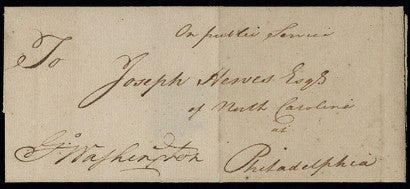 On public Service
To
Joseph Hewes Esqr
of North Carolina
at
Go Washington
Philadelphia